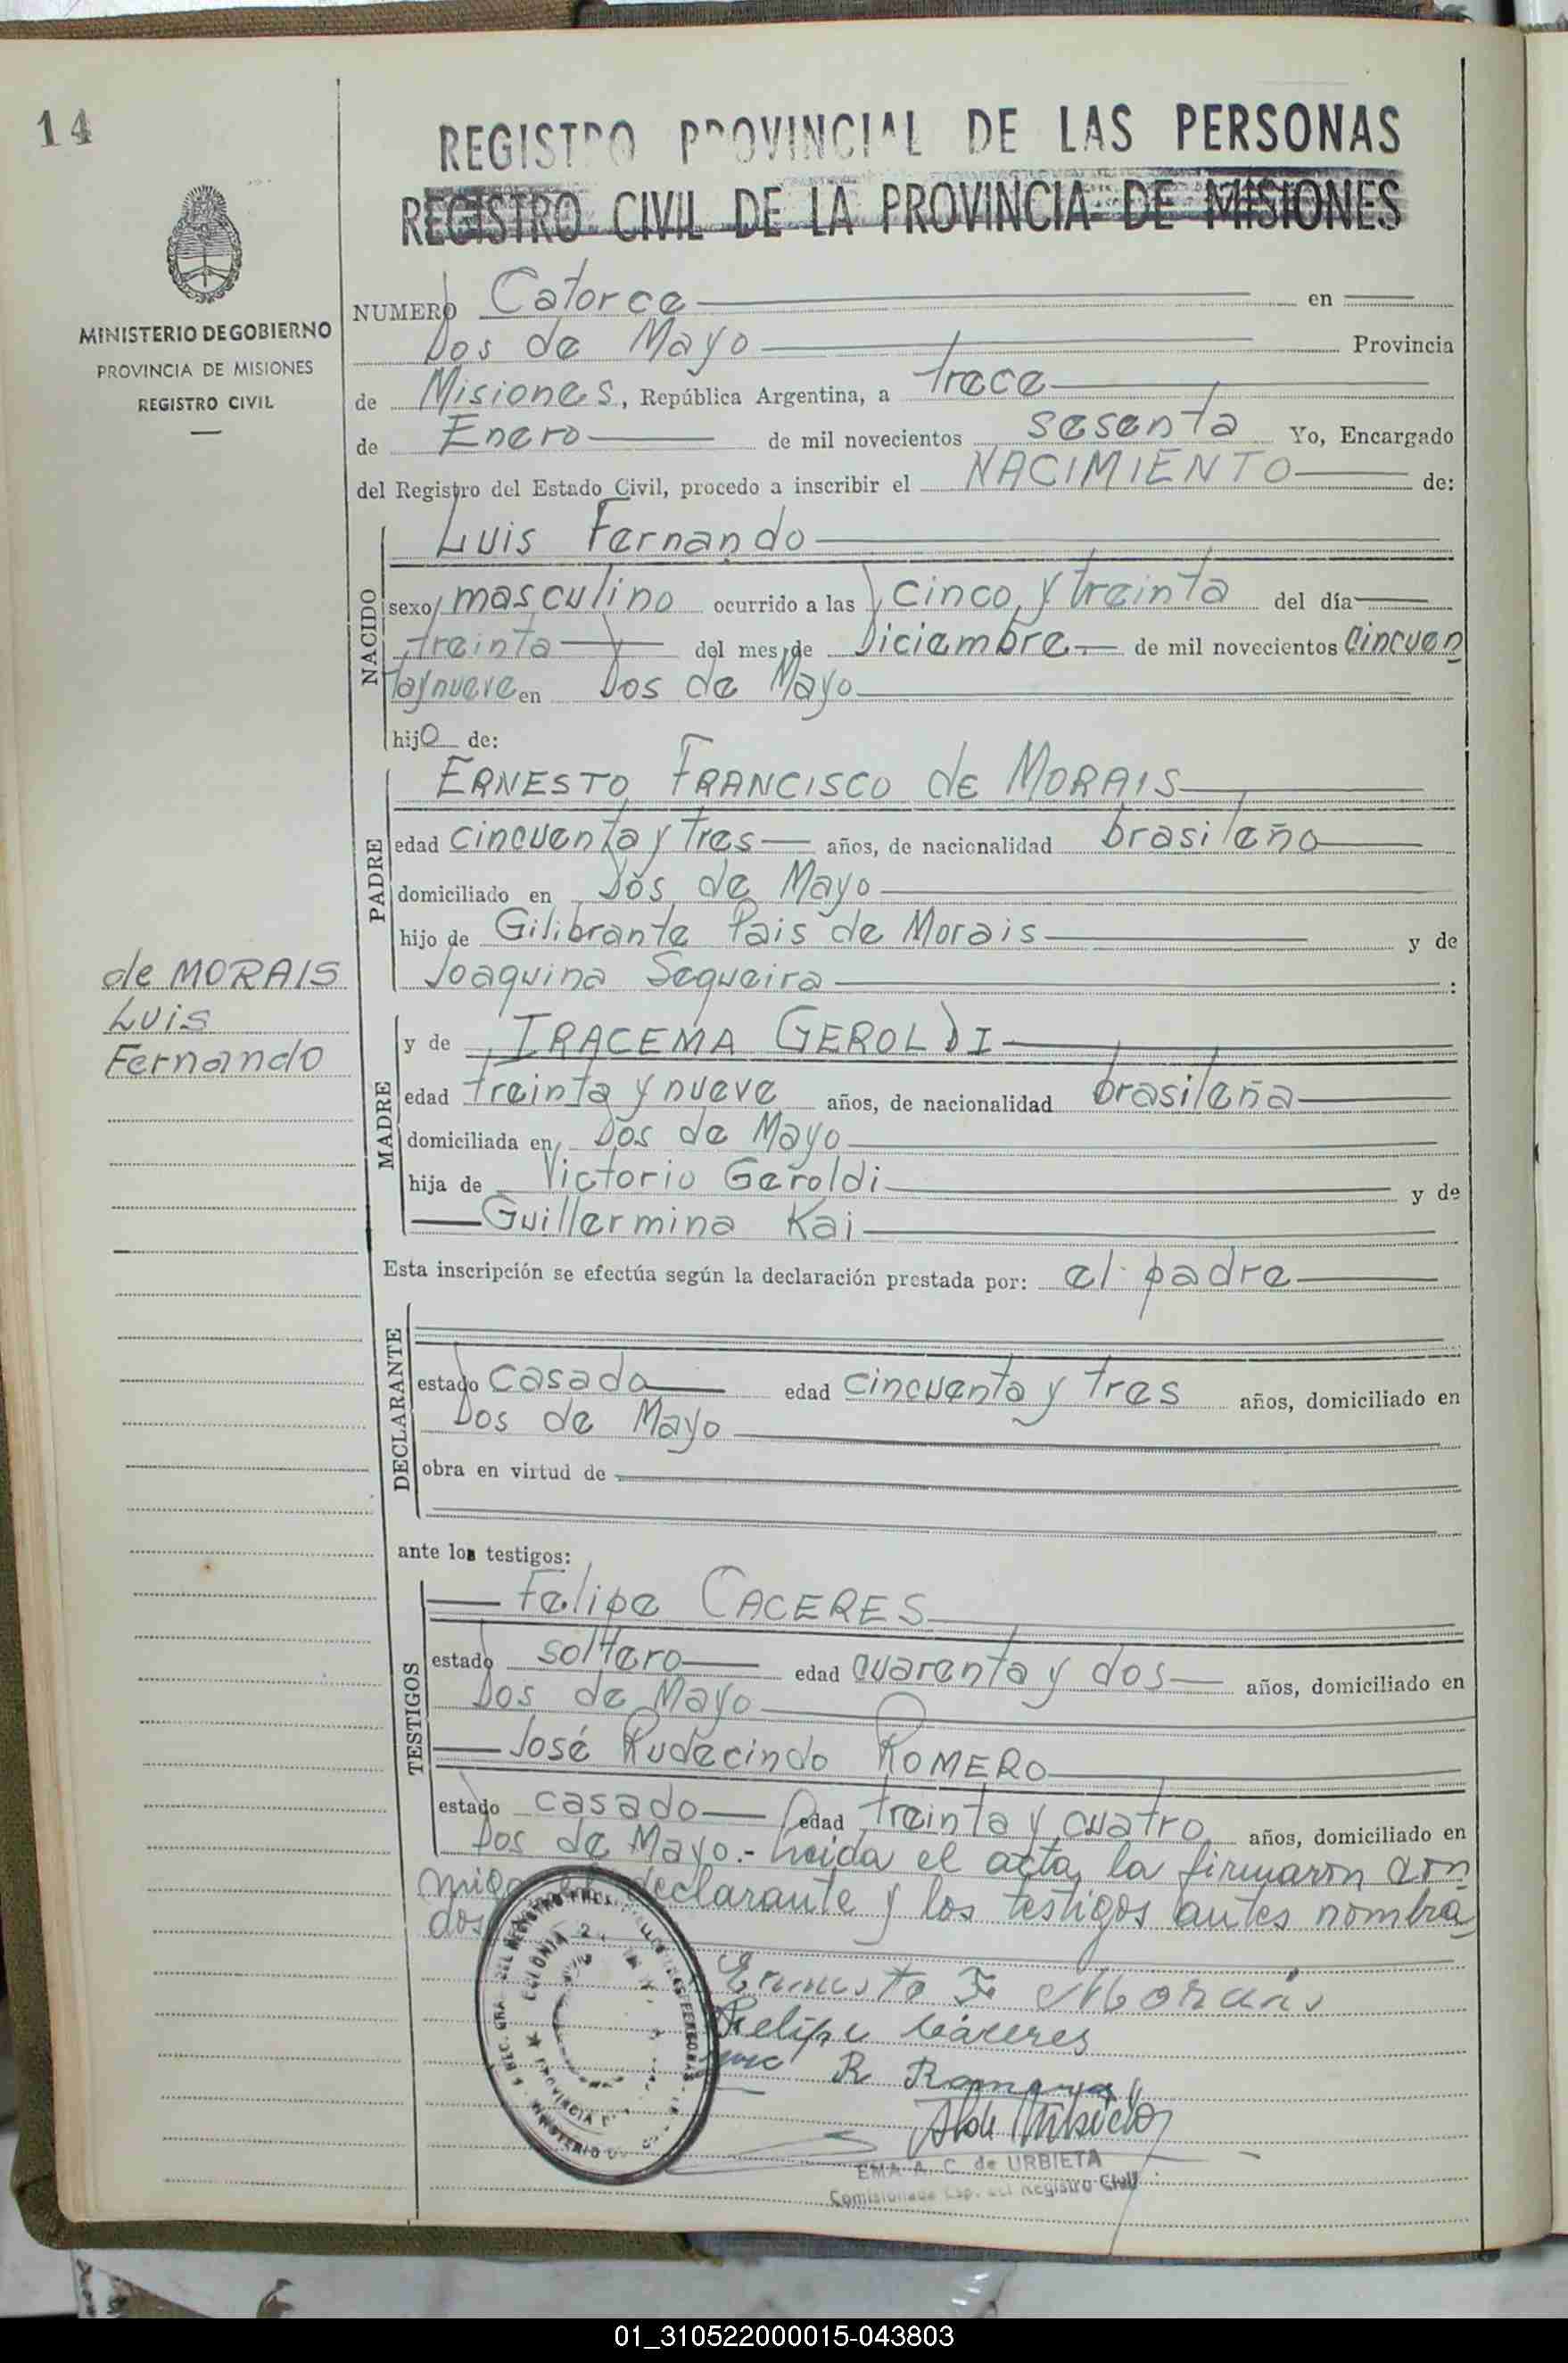 14
REGISTRO PROVINCIAL DE LAS PERSONAS
REGISTRO CIVIL DE LA PROVINCIA DE MISIONES
MINISTERIO DE GOBIERNO
PROVINCIA DE MISIONES
REGISTRO CIVIL
NUMERO Catorce en
Dos de Mayo Provincia
de Misiones, República Argentina, a trece
de Enero de mil novecientos sesenta Yo, Encargado
del Registro del Estado Civil, procedo a inscribir el NACIMIENTO de:
NACIDO
Luis Fernando
sexo masculino ocurrido a las cinco y treinta del día
treinta del mes de Diciembre.- de mil novecientos cincuen
ta y nueve en Dos de Mayo
hijo de:
PADRE
ERNESTO FRANCISCO de MORAIS
edad cincuenta y tres años, de nacionalidad brasileño
domiciliado en Dos de Mayo
hijo de Gilibrante Pais de Morais y de
Joaquina Sequeira :
de MORAIS
Luis
Fernando
MADRE
y de IRACEMA GEROLDI
edad treinta y nueve años, de nacionalidad brasileña
domiciliada en Dos de Mayo
hija de Victorio Geroldi y de
Guillermina Kai
Esta inscripción se efectúa según la declaración prestada por: el padre
DECLARANTE
estado casado edad cincuenta y tres años, domiciliado en
Dos de Mayo
obra en virtud de
ante los testigos:
TESTIGOS
Felipe CACERES
estado soltero edad cuarenta y dos años, domiciliado en
Dos de Mayo
José Rudecindo ROMERO
estado casado edad treinta y cuatro años, domiciliado en
Dos de Mayo.- Leida el acta, la firmaron con
migo el declarante y los testigos antes nombra
dos
Ernesto F Morais
Felipe Cáceres
R Romero
EMA A. C. de URBIETA
Comisionada Esp. del Registro Civil
01_310522000015-043803